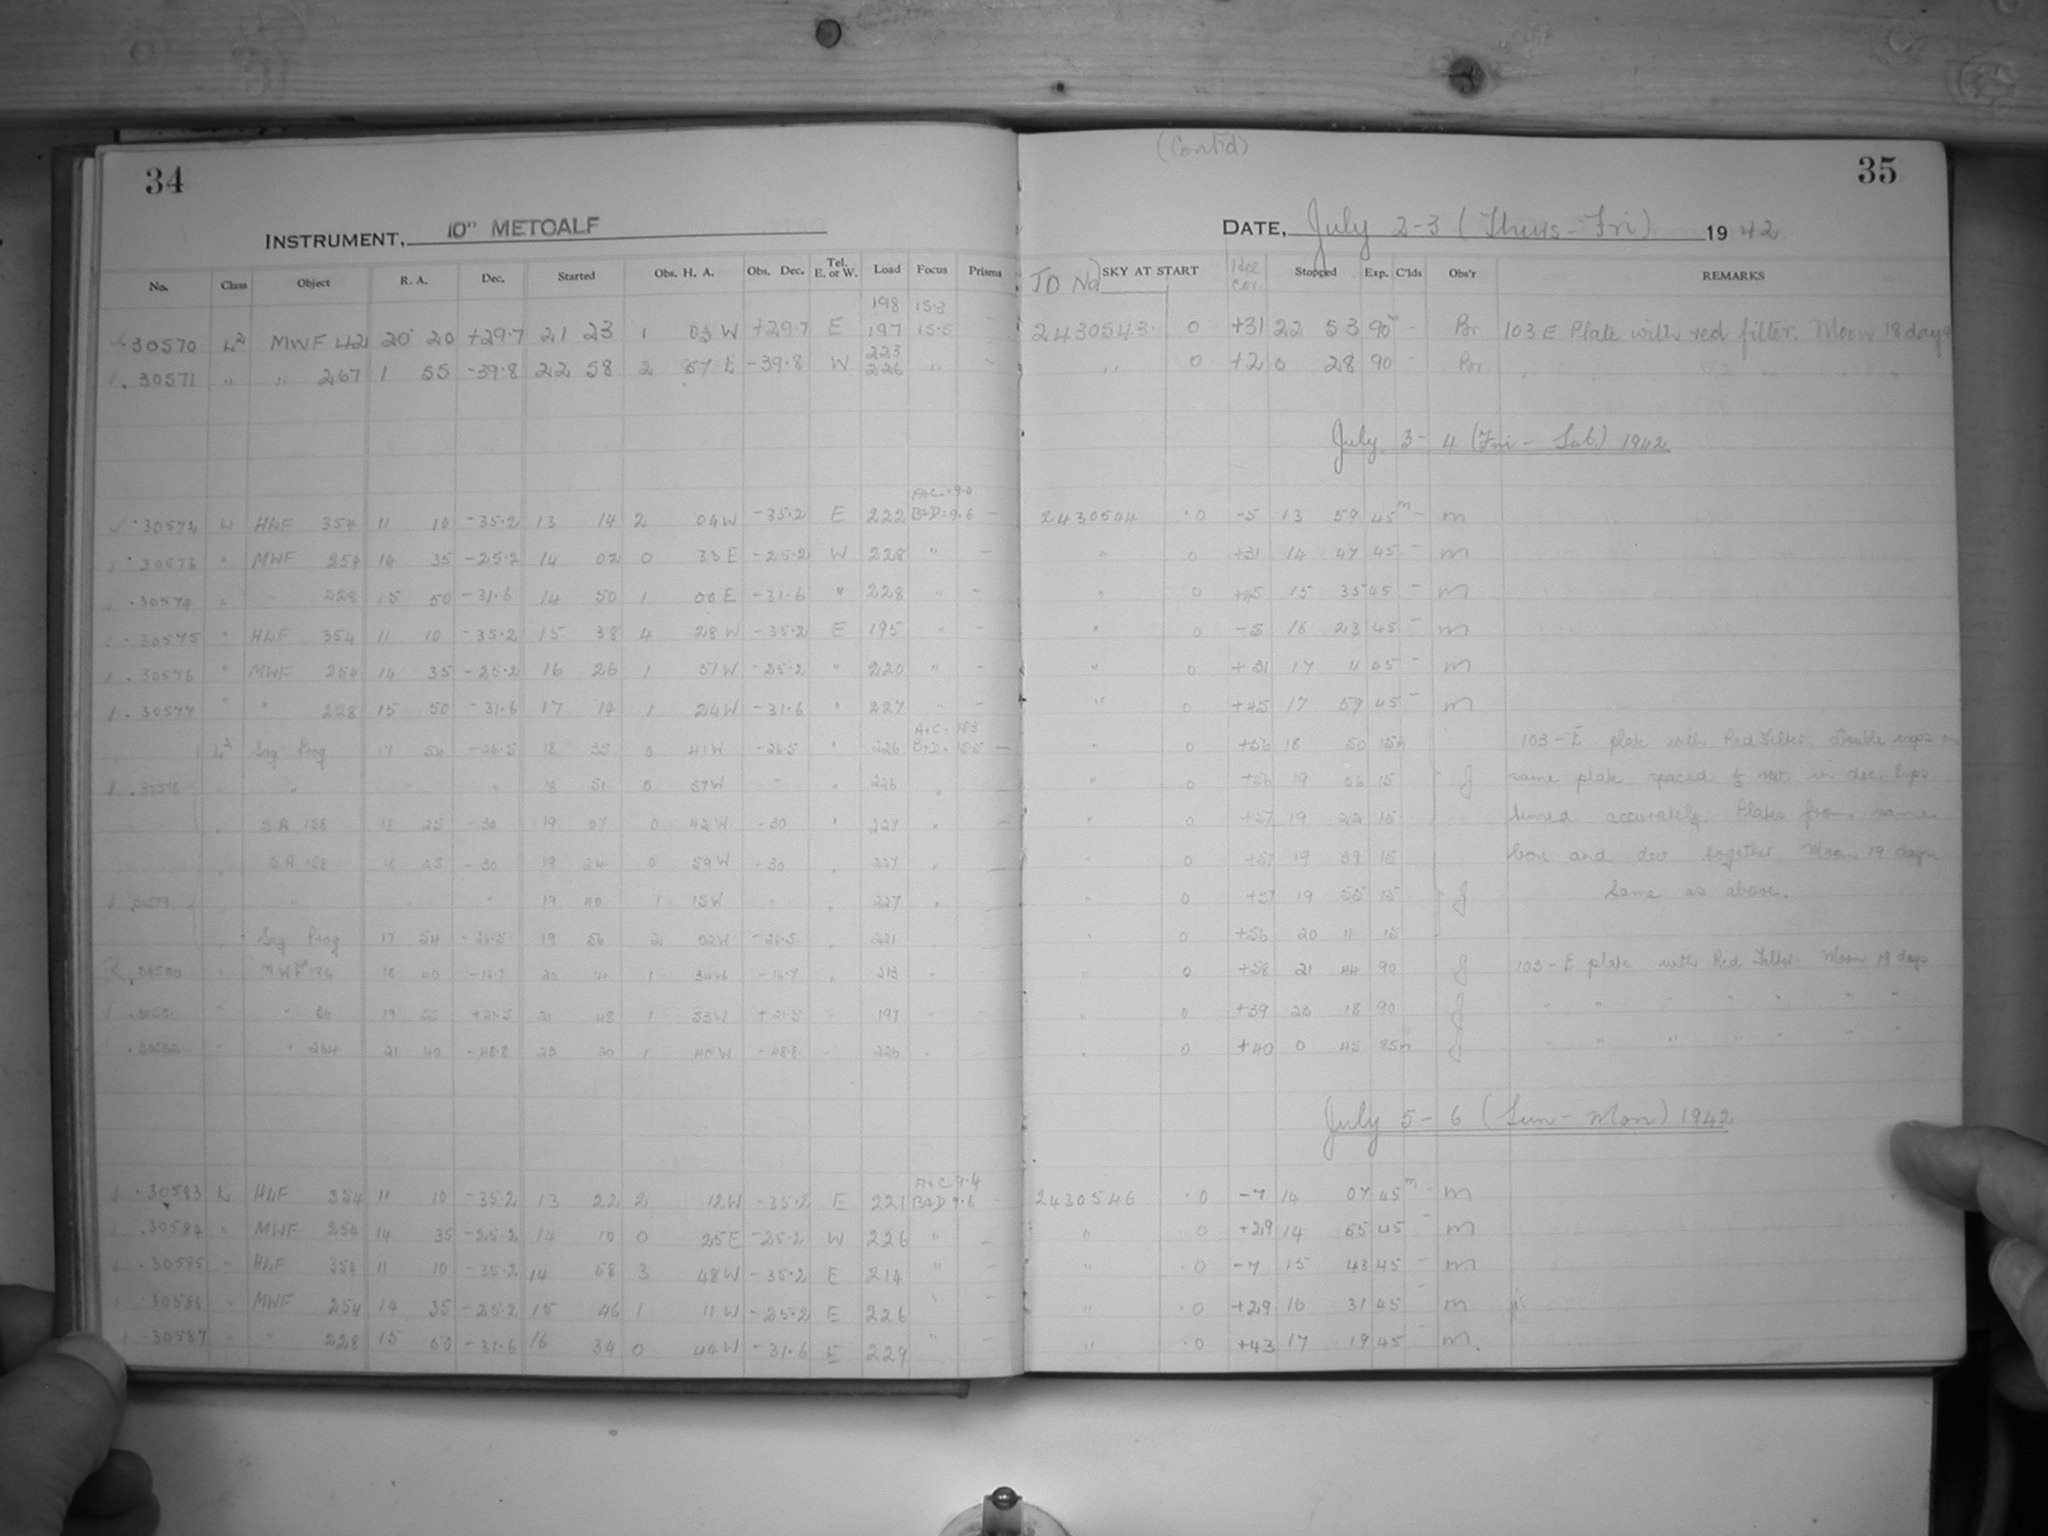 (Contd)
34
35
INSTRUMENT, 10" METCALF
DATE, July 2-3 (Thurs-Fri) 1942
No. Class Object R. A. Dec. Started Obs. H. A. Obs. Dec. Tel. E. or W. Load Focus Prisms JD No SKY AT START Stopped Exp. C'lds Obs'r REMARKS
198 15.3
30570 L2 MWF 42 20 20 +29.7 21 23 1 03 W +29.7 E 197 15.5 2430543 0 +31 22 53 90m - Br 103 E Plate with red filter. Moon 18 days
223
30571 " " 267 1 55 -39.8 22 58 2 57 E -39.8 W 226 " " 0 +2 0 28 90 Br
July 3-4 (Fri - Sat.) 1942
A+C=9.4
30572 L HLF 354 11 10 -35.2 13 14 2 04 W -35.2 E 222 B+D=9.6 - 2430544 0 -5 13 59 45m - m
30573 " MWF 254 14 35 -25.2 14 02 0 33 E -25.2 W 228 " - " 0 +31 14 47 45 - m
30574 " " 228 15 50 -31.6 14 50 1 00 E -31.6 " 228 " - " 0 +45 15 35 45 - m
30575 " HLF 354 11 10 -35.2 15 38 4 28 W -35.2 E 195 " - " 0 -5 16 23 45 - m
30576 " MWF 254 14 35 -25.2 16 26 1 51 W -25.2 " 220 " - " 0 +31 17 11 45 - m
30577 " " 228 15 50 -31.6 17 14 1 24 W -31.6 " 227 " - " 0 +45 17 59 45 - m
A+C=15.3
L2 Sag Prog 17 54 -26.5 18 35 0 41 W -26.5 " 226 B+D=15.5 - " 0 +56 18 50 15m 103-E plate with Red Filter. Double exps on
30578 " " " " 18 51 0 57 W " " 226 " " 0 +56 19 06 15 J same plate spaced in dec. Exps
" SA 158 18 25 -30 19 07 0 42 W -30 " 227 " - " 0 +57 19 22 15 timed accurately. Plates from same
" SA 158 18 25 -30 19 24 0 59 W -30 " 227 " - " 0 +57 19 39 15 box and dev. together. Moon 19 days.
30579 " " " " 19 40 1 15 W " " 227 " - " 0 +57 19 55 15 J Same as above.
" Sag Prog 17 54 -26.5 19 56 2 02 W -26.5 " 221 " " 0 +56 20 11 15
30580 " MWF 18 40 20 14 1 34 W " 213 " " 0 +58 21 44 90 J 103-E plate with Red Filter. Moon 19 days
30581 " " 19 +21.5 21 48 1 53 W +21.5 197 " - " 0 +39 23 18 90 J " " " " " " "
30582 " " 21 40 -48.8 23 20 1 40 W -48.8 " " 0 +40 0 45 85m J " " " " " "
July 5-6 (Sun-Mon) 1942
A+C 9.4
30583 L HLF 354 11 10 -35.2 13 22 2 12 W -35.2 E 221 B+D 9.6 - 2430546 0 -7 14 07 45m - m
30584 " MWF 254 14 35 -25.2 14 10 0 25 E -25.2 W 226 " - " 0 +29 14 55 45 - m
30585 " HLF 354 11 10 -35.2 14 58 3 48 W -35.2 E 214 " - " 0 -7 15 43 45 - m
30586 " MWF 254 14 35 -25.2 15 46 1 11 W -25.2 E 226 " - " 0 +29 16 31 45 - m
30587 " " 228 15 50 -31.6 16 34 0 44 W -31.6 E 229 " - " 0 +43 17 19 45 - m.